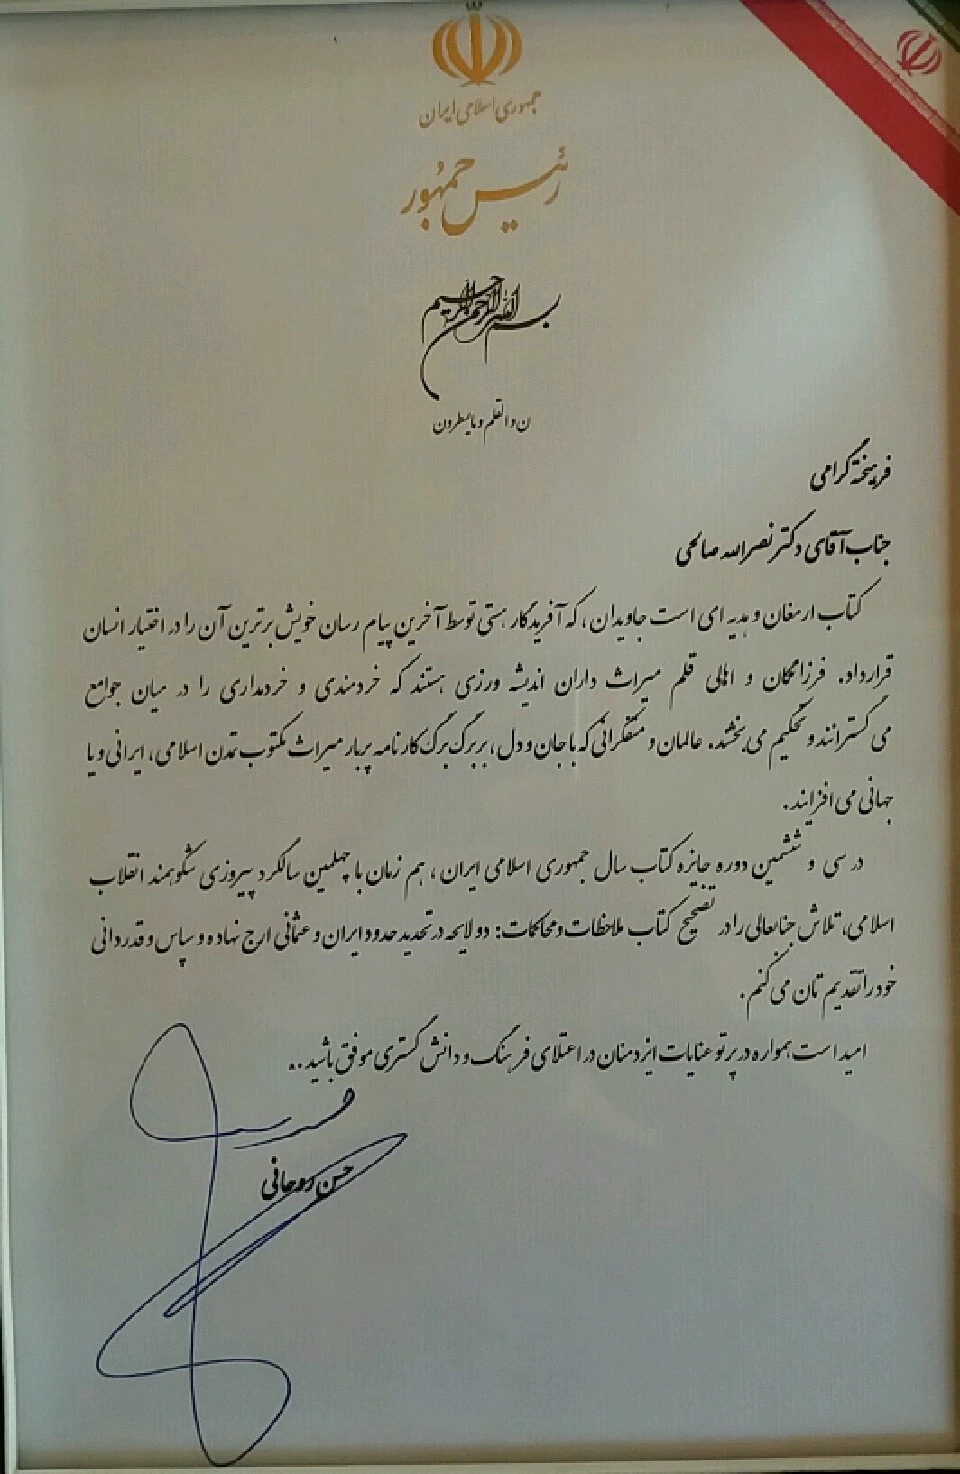 جمهوری اسلامی ایران
رئیس جمهور
بسم الله الرحمن الرحیم
ن والقلم و ما یسطرون
فرهیخته گرامی
جناب آقای دکتر نصرالله صالحی
کتاب ارمغان و هدیه ای است جاویدان، که آفریدگار هستی توسط آخرین پیام رسان خویش برترین آن را در اختیار انسان
قرار داد. فرزانگان و اهالی قلم میراث داران اندیشه ورزی هستند که خردمندی و خردمداری را در میان جوامع
می گسترانند و تحکیم می بخشند. عالمان و متفکرانی که با جان و دل، بر برگ برگ کارنامه پربار میراث مکتوب تمدن اسلامی، ایرانی و یا
جهانی می افزایند.
در سی و ششمین دوره جایزه کتاب سال جمهوری اسلامی ایران، هم زمان با چهلمین سالگرد پیروزی شکوهمند انقلاب
اسلامی، تلاش جنابعالی را در تصحیح کتاب ملاحظات و محاکمات: دو لایحه در تحدید حدود ایران و عثمانی ارج نهاده و سپاس و قدردانی
خود را تقدیم تان می کنم.
امید است همواره در پرتو عنایات ایزد منان در اعتلای فرهنگ و دانش گستری موفق باشید..
حسن روحانی